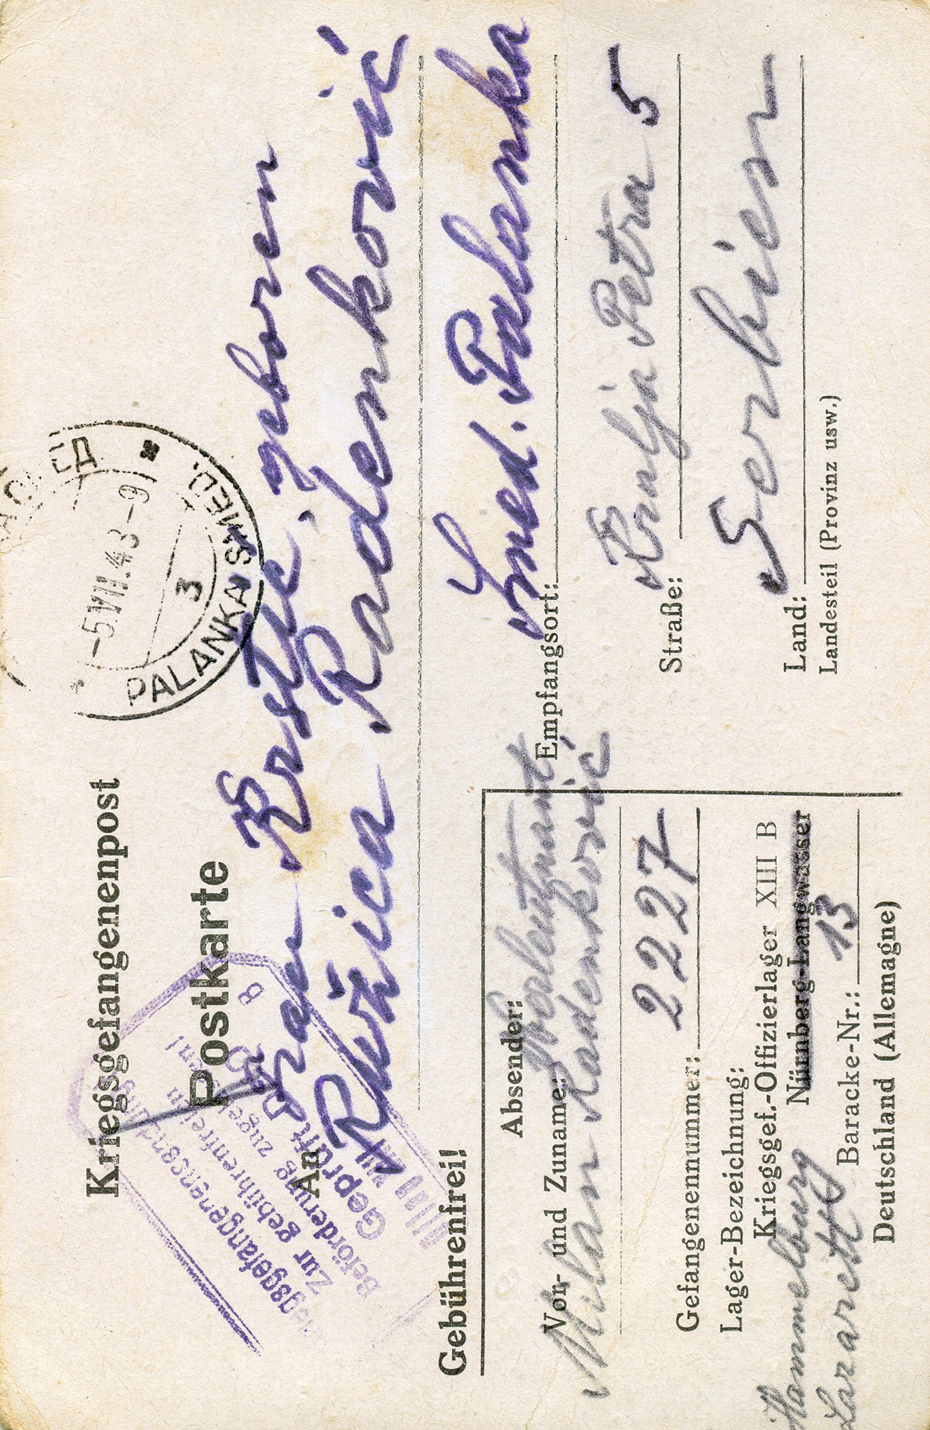 Kriegsgefangenenpost
Postkarte
PALANKA SMED.
3
-5.VII.43-9
Kriegsgefangenensendung
Zur gebührenfreien
Beförderung zugelassen!
Geprüft
B
An
Frau Krstić, geboren
Ružica Radenković
Gebührenfrei!
Empfangsort: Smed. Palanka
Straße: Kralja Petra 5
Land: Serbien
Landesteil (Provinz usw.)
Absender:
Vor- und Zuname: Oberleutnant,
Milan Radenković
Gefangenennummer: 2227
Lager-Bezeichnung:
Kriegsgef.-Offizierlager XIII B
Hammelburg Nürnberg-Langwasser
Lazarett Baracke-Nr.: 13
Deutschland (Allemagne)